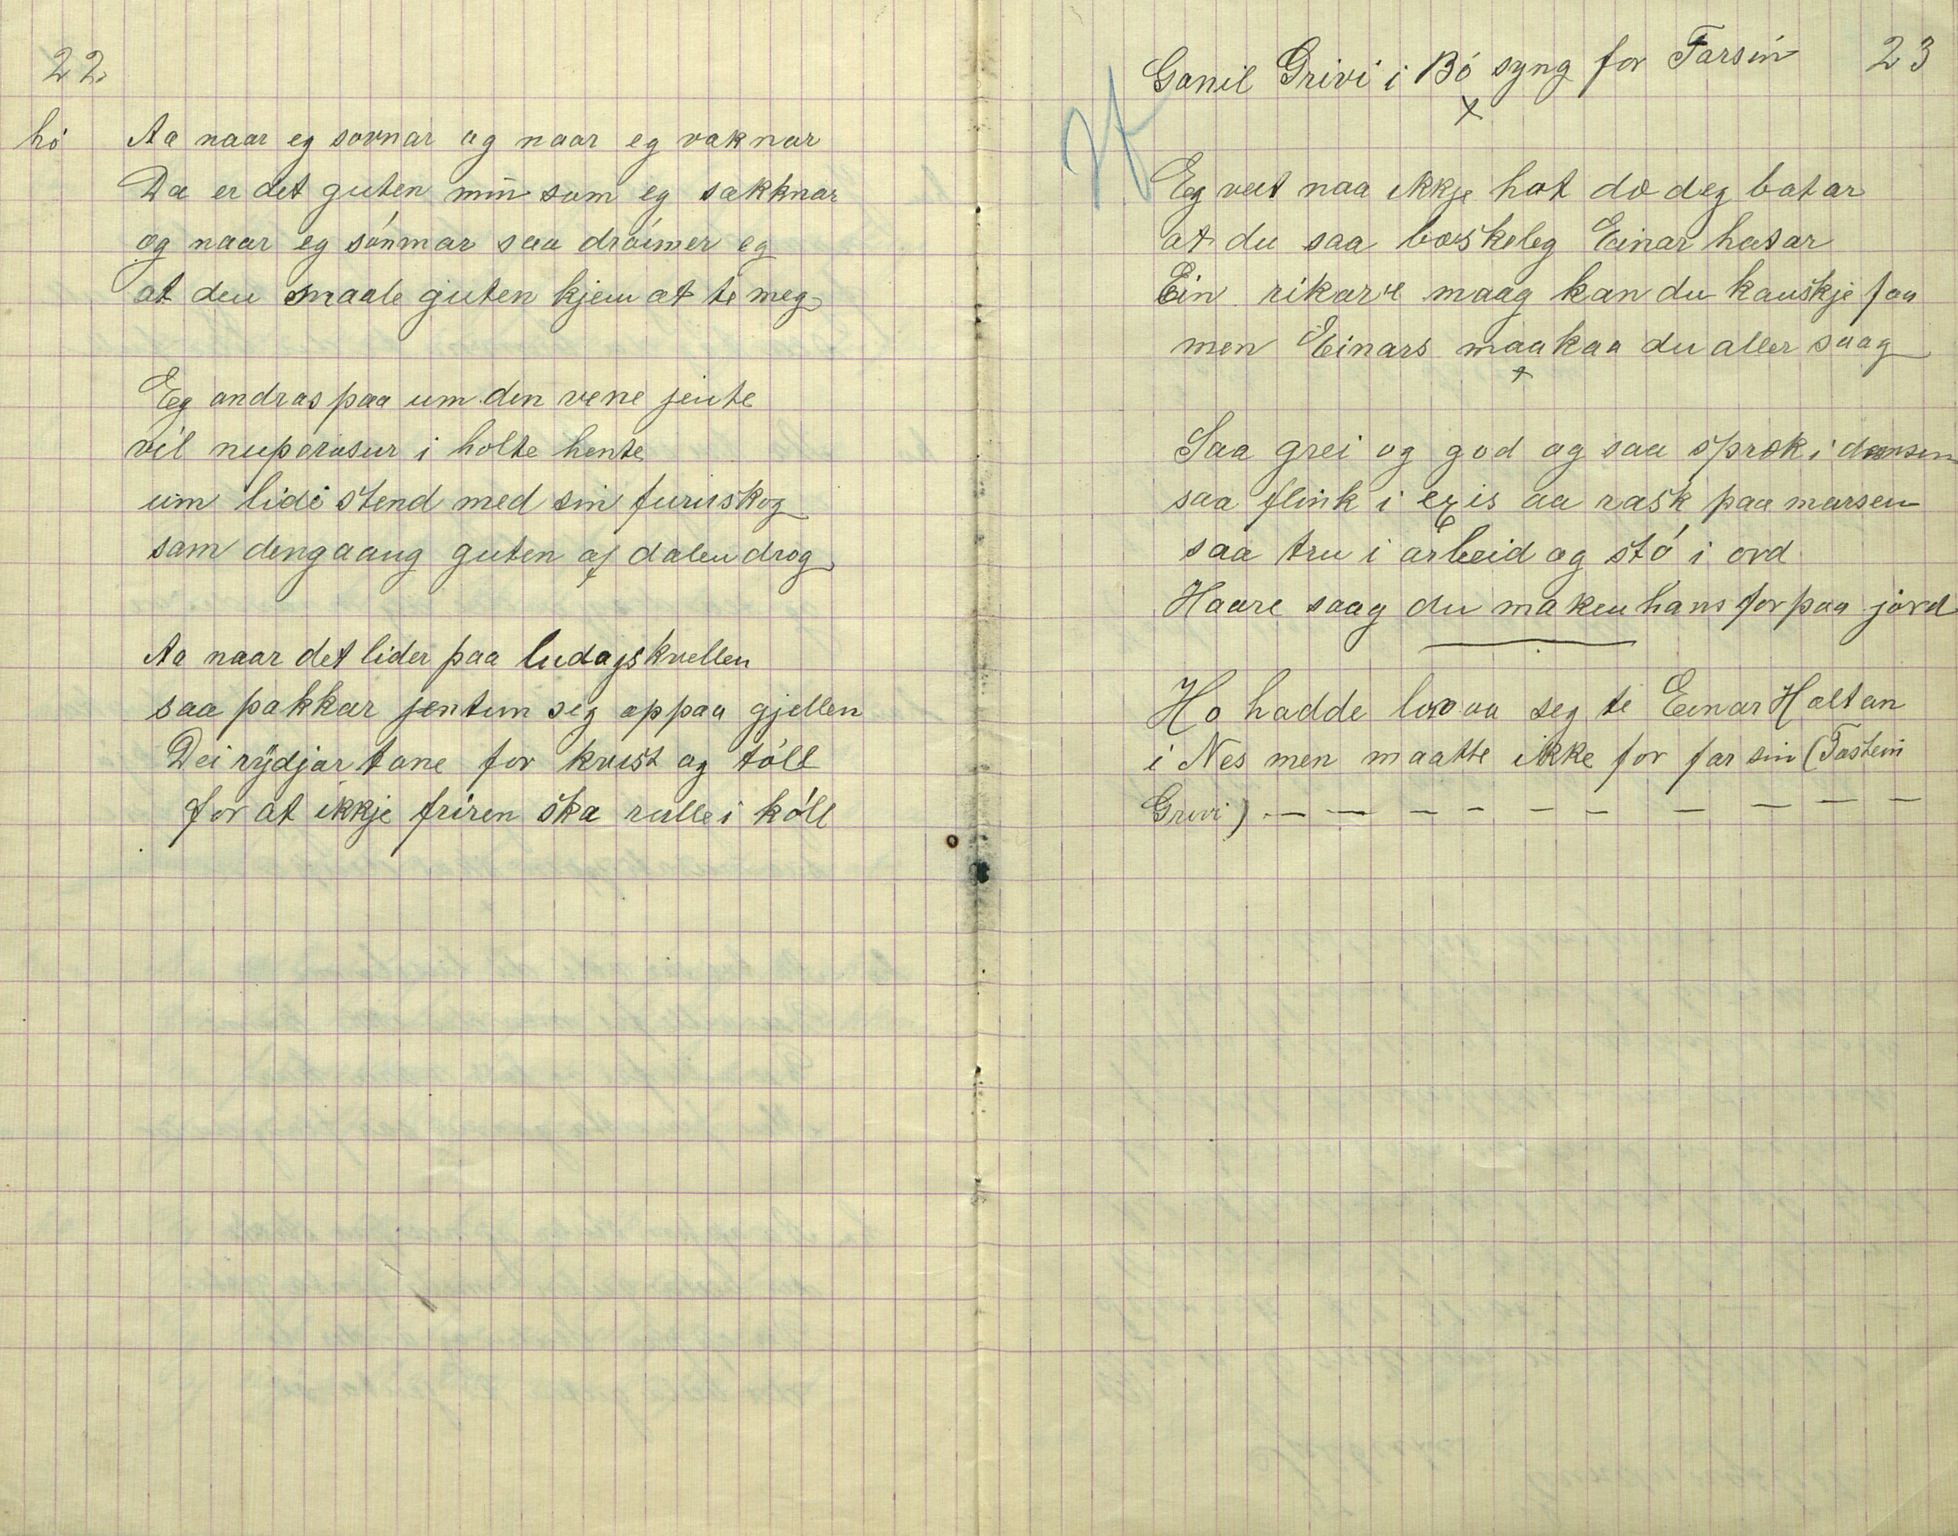 22
hó Aa naar eg sovnar og naar eg vaknar
Da er det guten min som eg sakknar
og naar eg sónmar saa dróimer eg
at den smaale guten kjem at te meg
Eg andras paa um den vene jente
vil nuperosur i holte hente
um lidi stend med sin furuskog
som dengaang guten af dalen drog
Aa naar det lider paa ludagskvellen
saa pakkar jentun seg oppaa gjellen
Dei rydjar tane for kvist og tóll
for at ikkje friren ska rulle i kóll
23
Gonil Grivi i Bó syng for Farsin
x
Eg veit naa ikkje hot do deg batar
at du saa boskeleg Einar hatar
Ein rikare maag kan du kanskje faa
men Einars maakaa du aller saag
x
Saa grei og god og saa sprek i dansen
saa flink i exis aa rask paa marsen
saa tru i arbeid og stó i ord
Haare saag du maken hans for paa jord
Ho hadde lovaa seg te Einar Holtan
i Nes men maatte ikke for far sin (Tostein
Grivi) — — — — — — — — — —